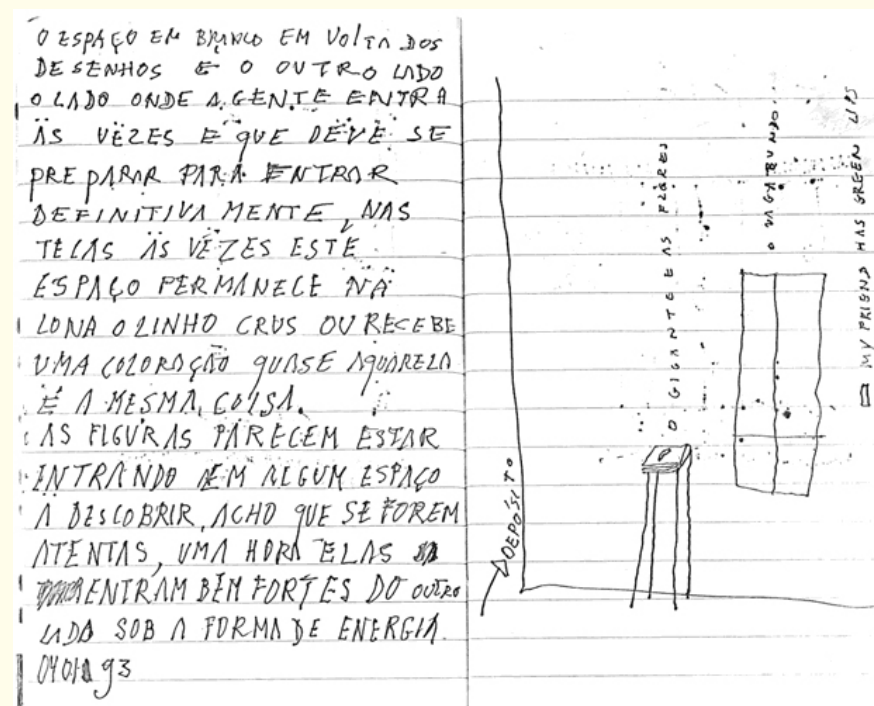 O ESPAÇO EM BRANCO EM VOLTA DOS
DESENHOS E O OUTRO LADO
O LADO ONDE A GENTE ENTRA
ÀS VEZES E QUE DEVE SE
PREPARAR PARA ENTRAR
DEFINITIVAMENTE, NAS
TELAS ÀS VEZES ESTE
ESPAÇO PERMANECE NA
LONA O LINHO CRUS OU RECEBE
UMA COLORAÇÃO QUASE AQUARELA
É A MESMA COISA.
AS FIGURAS PARECEM ESTAR
ENTRANDO EM ALGUM ESPAÇO
A DESCOBRIR, ACHO QUE SE FOREM
ATENTAS, UMA HORA ELAS
ENTRAM BEM FORTES DO OUTRO
LADO SOB A FORMA DE ENERGIA.
93
DEPÓSITO
O GIGANTE E AS FLORES
O VAGABUNDO
MY FRIEND HAS GREEN LIPS